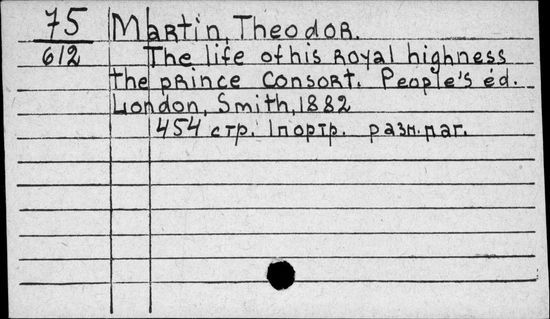 75
612
Martin, Theodor.
The life of his Royal highness
the prince Consort. People's éd.
London, Smith, 1882
454 стр. 1 портр. разн. паг.